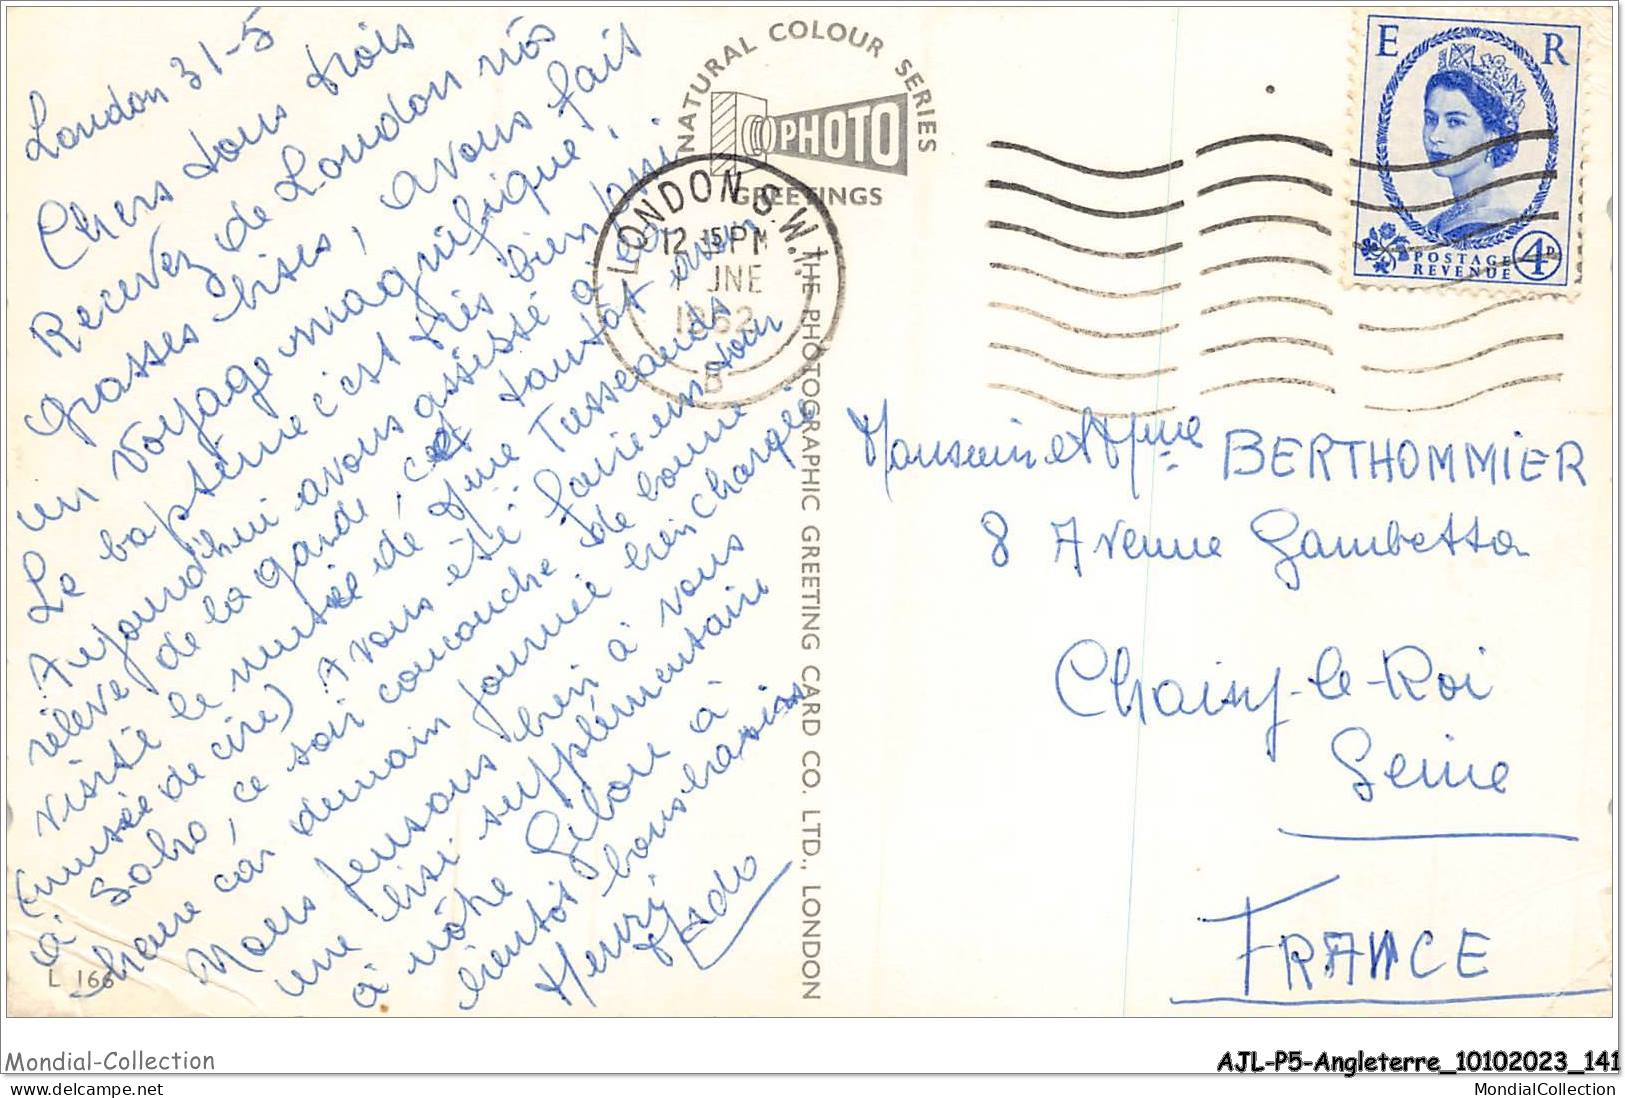 London 31-5
Chers tous trois
Recevez de London nos
grosses bises, avons fait
un voyage magnifique.
Le baptême c'est très bien passé
Aujourd'hui avons assisté à la
relève de la garde, cet tantôt avons
visité le musée de Mme Tusseauds
(musée de cire) Avons été faire un tour
à Soho, ce soir couche de bonne
heure car demain journée bien chargée
Nous pensons bien à vous
une bise supplémentaire
à nôtre à
bientôt bons baisers
Henri Mado
L 166
NATURAL COLOUR SERIES
PHOTO
GREETINGS
THE PHOTOGRAPHIC GREETING CARD CO. LTD., LONDON
LONDON S.W.1.
12 15 PM
1 JNE
1962
B
E R
POSTAGE
REVENUE
4D
Monsieur et Mme BERTHOMMIER
8 Avenue Gambetta
Choisy-le-Roi
Seine
FRANCE
Mondial-Collection
AJL-P5-Angleterre_10102023_141
Mondial-Collection.com
MondialCollection